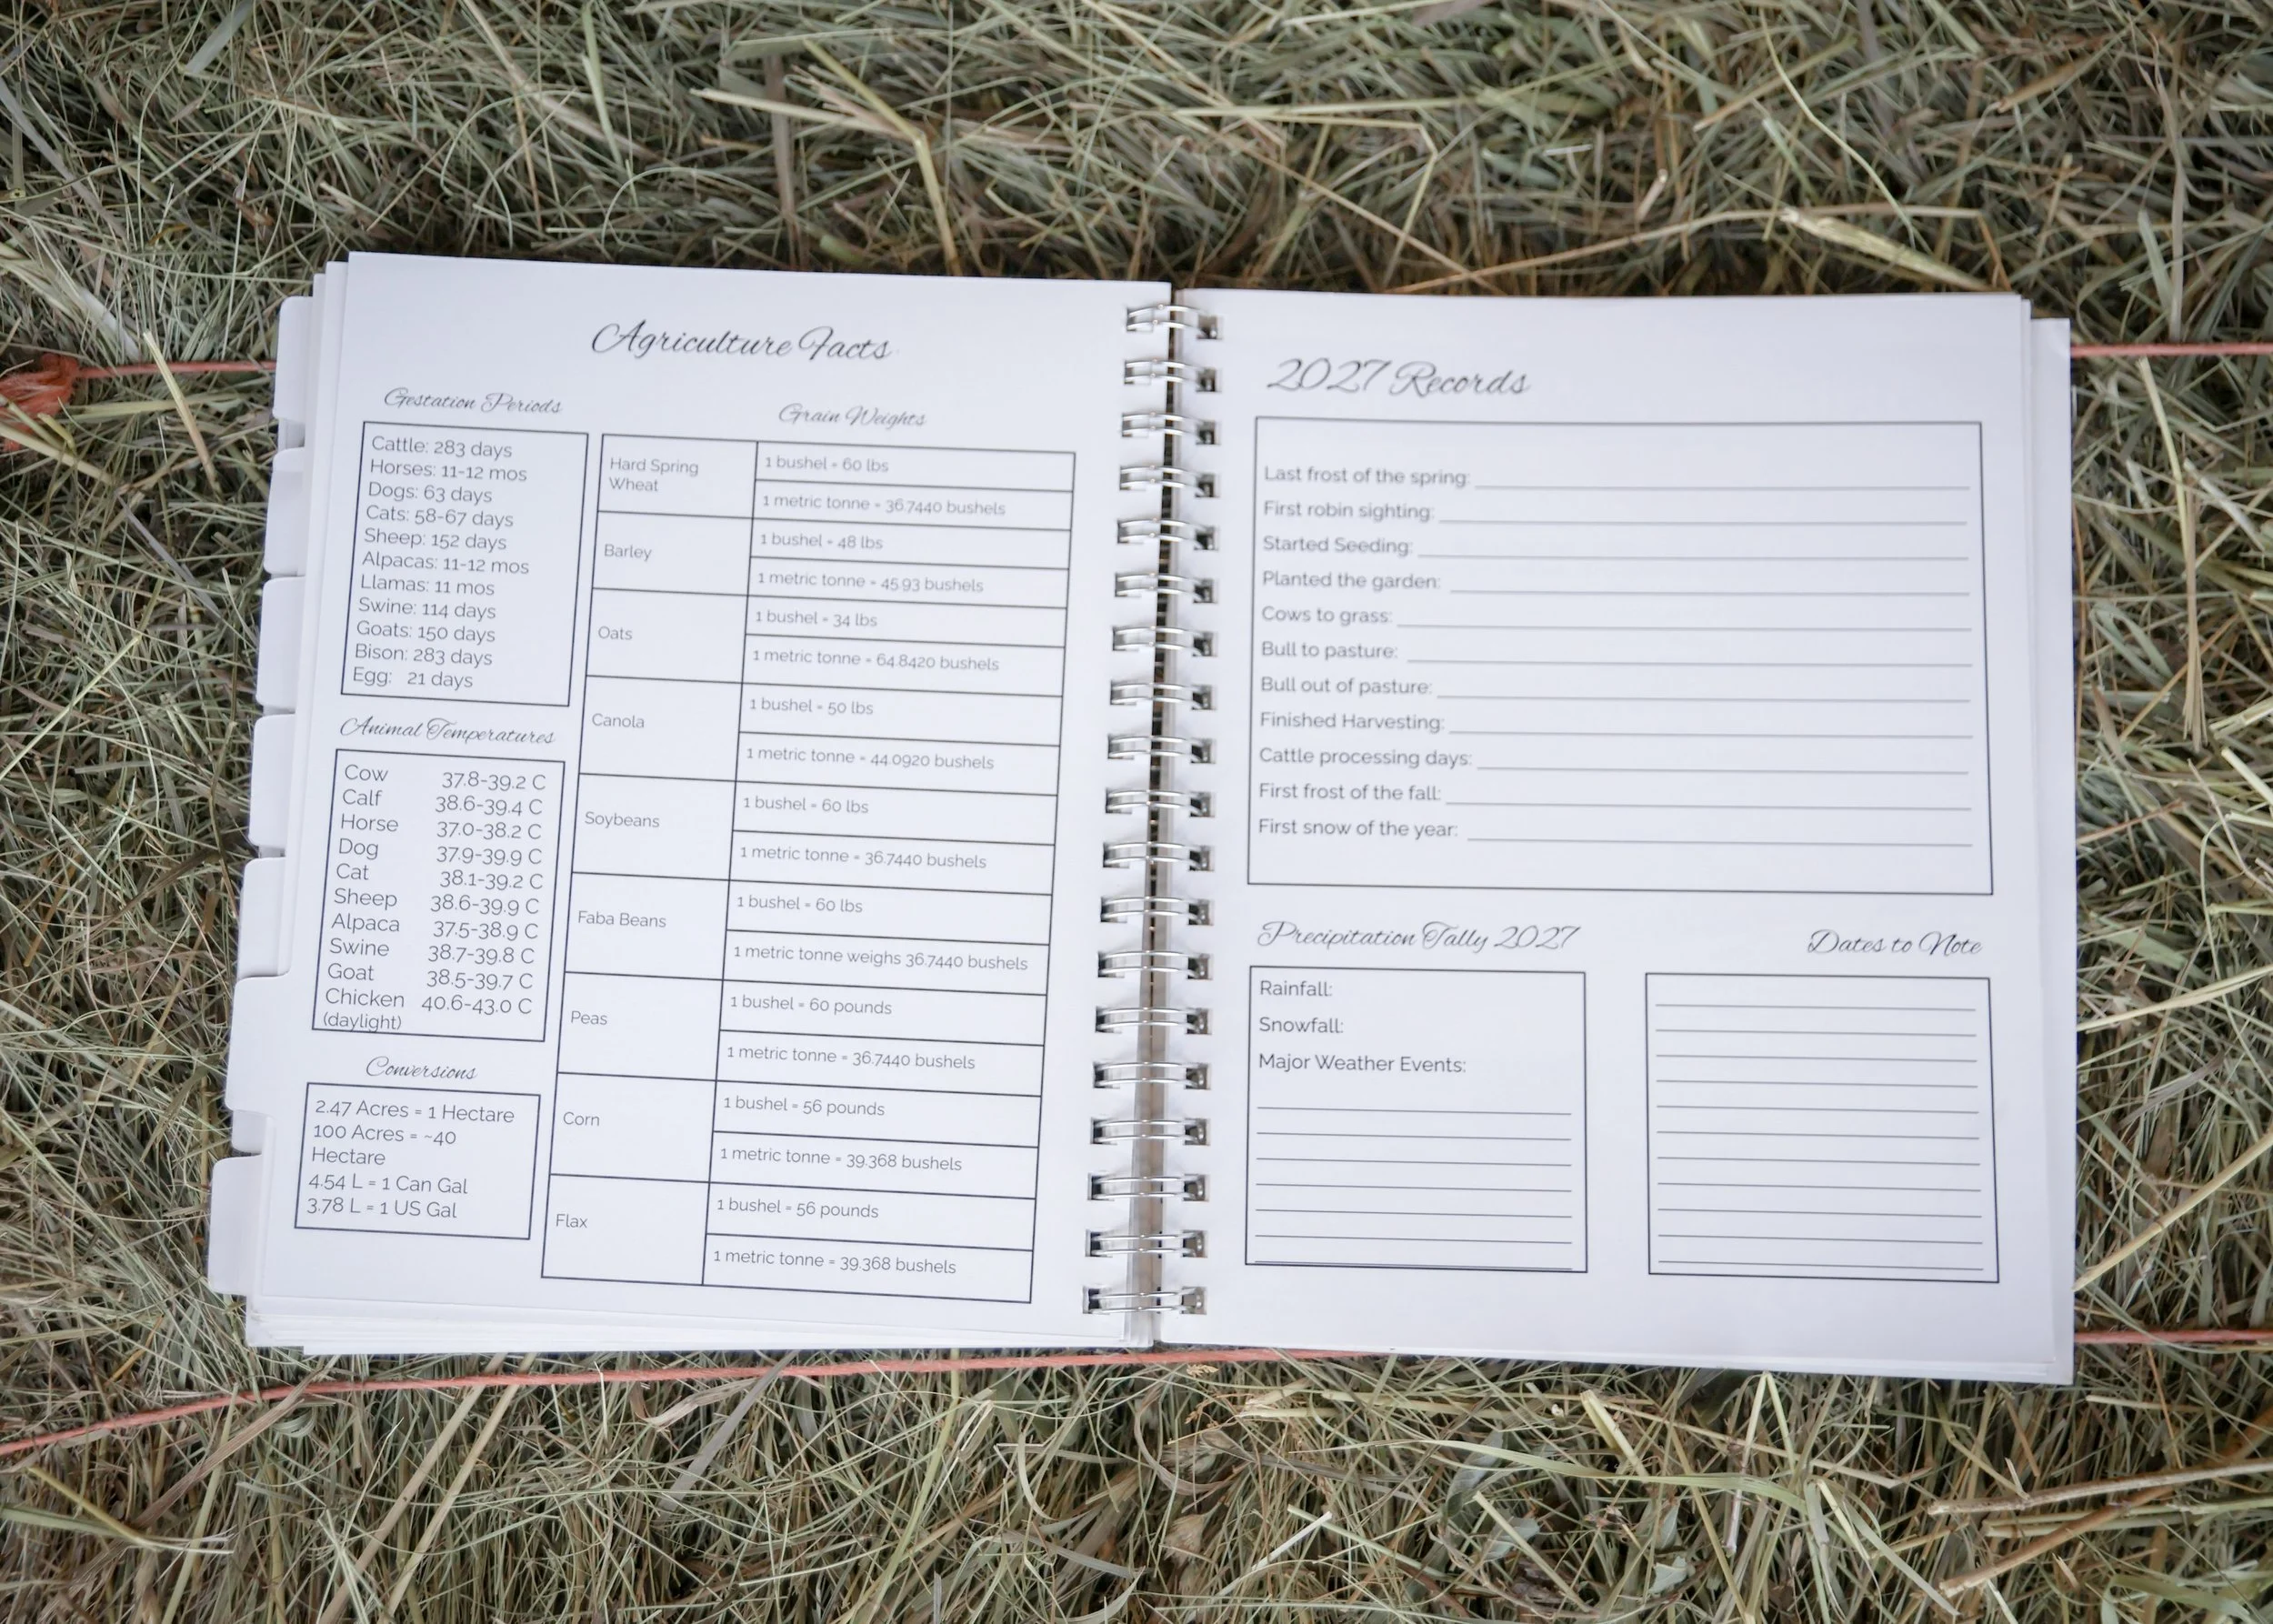 Agriculture Facts
Gestation Periods
Cattle: 283 days
Horses: 11-12 mos
Dogs: 63 days
Cats: 58-67 days
Sheep: 152 days
Alpacas: 11-12 mos
Llamas: 11 mos
Swine: 114 days
Goats: 150 days
Bison: 283 days
Egg: 21 days
Animal Temperatures
Cow 37.8-39.2 C
Calf 38.6-39.4 C
Horse 37.0-38.2 C
Dog 37.9-39.9 C
Cat 38.1-39.2 C
Sheep 38.6-39.9 C
Alpaca 37.5-38.9 C
Swine 38.7-39.8 C
Goat 38.5-39.7 C
Chicken 40.6-43.0 C
(daylight)
Conversions
2.47 Acres = 1 Hectare
100 Acres = ~40
Hectare
4.54 L = 1 Can Gal
3.78 L = 1 US Gal
Grain Weights
Hard Spring
Wheat
1 bushel = 60 lbs
1 metric tonne = 36.7440 bushels
Barley
1 bushel = 48 lbs
1 metric tonne = 45.93 bushels
Oats
1 bushel = 34 lbs
1 metric tonne = 64.8420 bushels
Canola
1 bushel = 50 lbs
1 metric tonne = 44.0920 bushels
Soybeans
1 bushel = 60 lbs
1 metric tonne = 36.7440 bushels
Faba Beans
1 bushel = 60 lbs
1 metric tonne weighs 36.7440 bushels
Peas
1 bushel = 60 pounds
1 metric tonne = 36.7440 bushels
Corn
1 bushel = 56 pounds
1 metric tonne = 39.368 bushels
Flax
1 bushel = 56 pounds
1 metric tonne = 39.368 bushels
2027 Records
Last frost of the spring:
First robin sighting:
Started Seeding:
Planted the garden:
Cows to grass:
Bull to pasture:
Bull out of pasture:
Finished Harvesting:
Cattle processing days:
First frost of the fall:
First snow of the year:
Precipitation Tally 2027
Rainfall:
Snowfall:
Major Weather Events:
Dates to Note